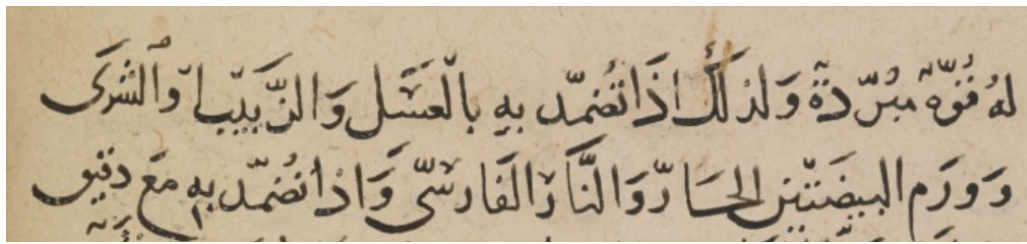 لهُ قُوّة مبُرّدة وَلذلكَ اذَا تُضمّد بهِ بالعسَل وَالزَّبيب ابرا الشرَى
وَوَرَم البيضَتين الحَارّ وَالنَّارَ الفَارسّى وَاذا تُضمّد بهِ معَ دقيق